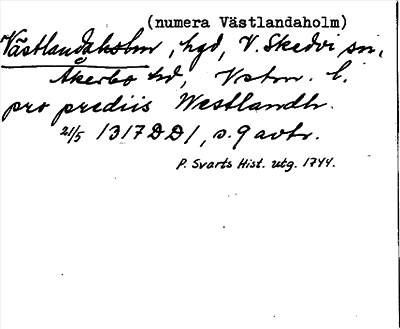 (numera Västlandaholm)
Västlandaholm, hgd, V. Skedvi sn,
Åkerbo hd, Vstm. l.
pro prediis Westlandh.
21/5 1317 DD1, s. 9 avtr.
P. Svarts Hist. utg. 1744.